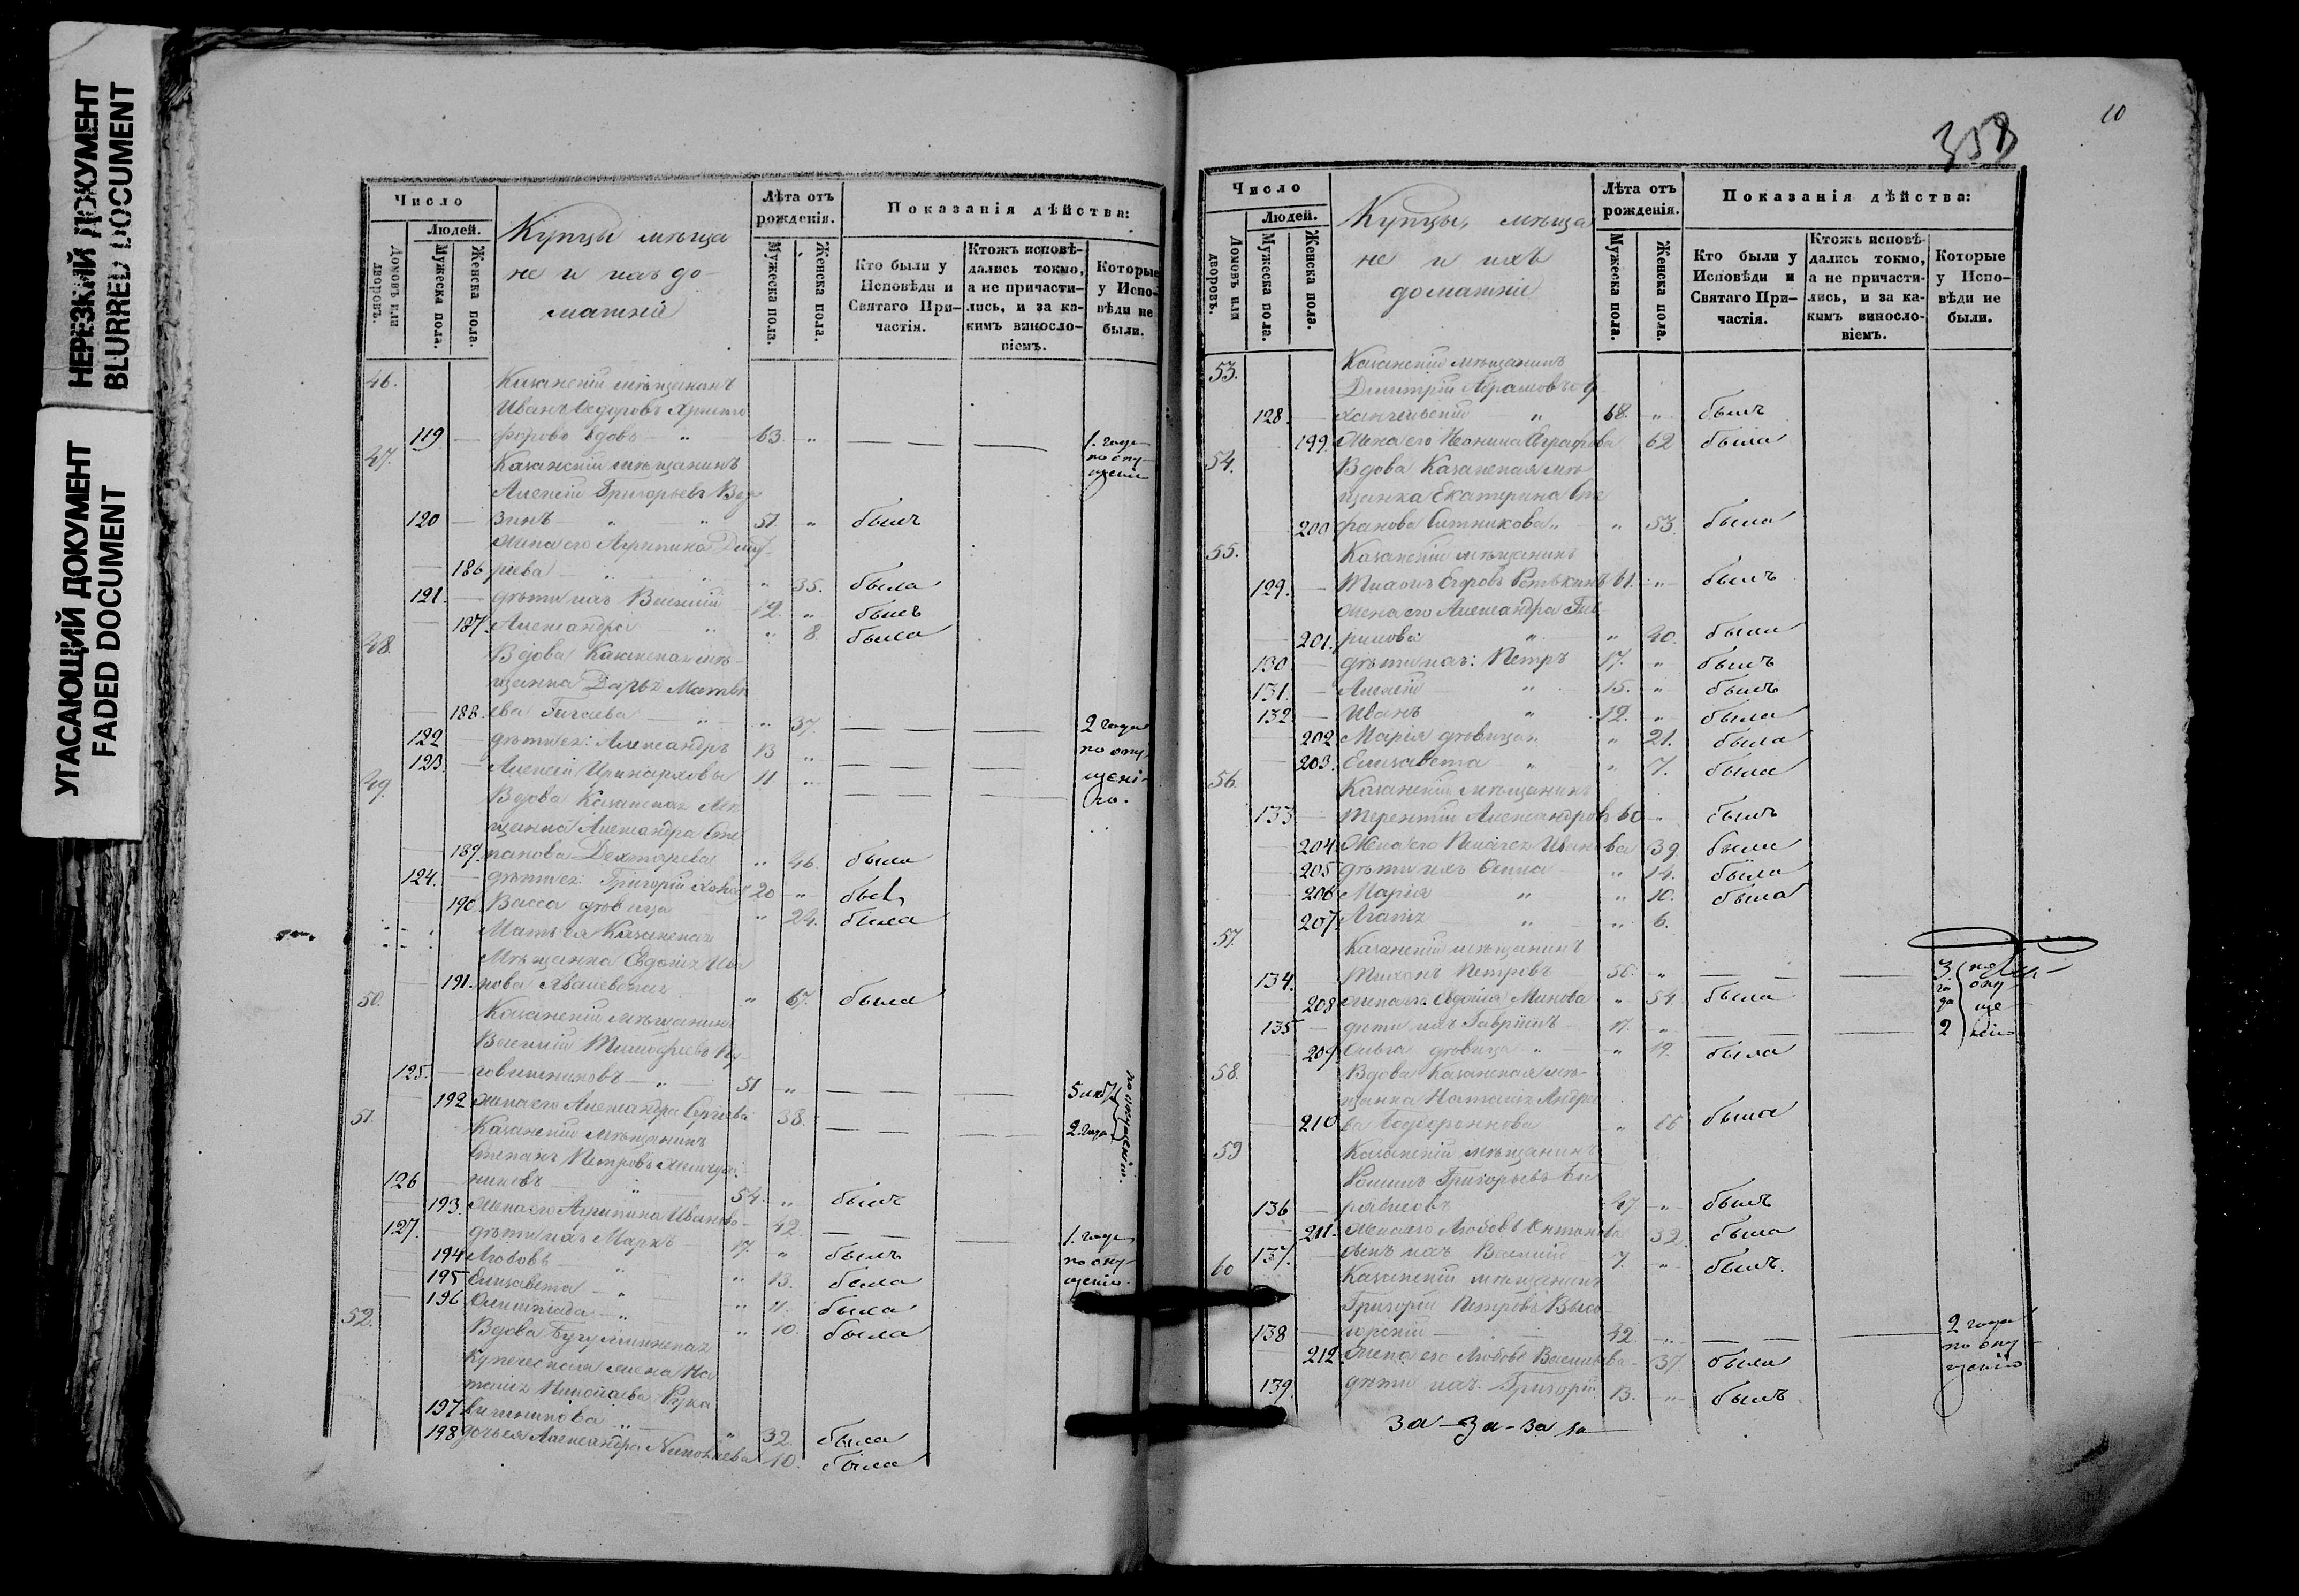 НЕРЕЗКИЙ ДОКУМЕНТ
BLURRED DOCUMENT
УГАСАЮЩИЙ ДОКУМЕНТ
FADED DOCUMENT
Число
Людей.
Домовъ или дворовъ.
Мужеска пола.
Женска пола.
Купцы мѣща
не и ихъ до-
машній
Лѣта отъ рожденія.
Мужеска пола.
Женска пола.
Показанія дѣйства:
Кто были у Исповѣди и Святаго При-частія.
Ктожъ исповѣ-дались токмо, а не причасти-лись, и за ка-кимъ винословіемъ.
Которые у Испо-вѣди не были.
46. Казанскій мѣщанинъ
Иванъ Ѳедоровъ Христо
119 — форовъ вдовъ — „ 63. „ — — — 1. годъ
по опу-
щенію
47. Казанскій мѣщанинъ
Алексій Григорьевъ
120 — зинъ „ „ 51. „ былъ
Жена его Агрипина Дмит-
186 ріева „ „ „ 35. была
121. — дѣти ихъ Василій 12. „ былъ
187. Александра „ „ 8. была
48. Вдова Казанская мѣ-
щанка Дарья Матвѣ
188. ева — „ „ 37. — — — 2 года
122 — дѣти ея: Александръ 13 „ — — — по опу-
123. — Алексій Иринарховы 11. „ — — — щені-
ю.
49. Вдова Казанская Мѣ
щанка Александра Сте
189. панова Дехтярева „ 46. была
124. — дѣти ея: Григорій 20 „ былъ
190. Васса дѣвица „ 24. была
Мать ея Казанская
Мѣщанка Евдокія Ива
191. нова „ 67. была
50. Казанскій мѣщанинъ
Василій Тимофеевъ Ру-
125. — кавишниковъ — „ 51 „ — — — 5 лѣтъ
192 жена его Александра Сергѣева 38. — — — 2. года
по опущенію.
51. Казанскій мѣщанинъ
Степанъ Петровъ
126 — никовъ „ 54. „ былъ
193. Жена его Агрипина Иванова 42. — — — 1. годъ
127. — дѣти ихъ Маркъ 17. „ былъ по опу-
194 Любовь „ „ 13. была щенію.
195 Елизавета — „ „ 11. была
196 Олимпіада — „ „ 10. была
52. Вдова Бугульминская
Купеческая жена На
талія Николаева Рука
197 вишникова „ „ 32. была
198 дочь ея Александра Николаева 10. была
10
358
Число
Людей.
Домовъ или дворовъ.
Мужеска пола.
Женска пола.
Купцы, мѣща
не и ихъ
домашніе
Лѣта отъ рожденія.
Мужеска пола.
Женска пола.
Показанія дѣйства:
Кто были у Исповѣди и Святаго При-частія.
Ктожъ исповѣ-дались токмо, а не причасти-лись, и за ка-кымъ винословіемъ.
Которые у Испо-вѣди не были.
53. Казанскій мѣщанинъ
Димитрій Абрамовъ
128 — хангельскій „ 68. „ былъ
199. Жена его Неонила Евграфова 62 была
54. Вдова Казанская мѣ
щанка Екатерина Сте
200 фанова Ситникова „ „ 53. была
55. Казанскій мѣщанинъ
129. — Тихонъ Егоровъ 61. „ былъ
Жена его Александра Гав
201. рилова „ „ 40. была
130 — дѣти ихъ: Петръ 17. „ былъ
131. — Алексій „ 15. „ былъ
132. — Иванъ „ 12. „ была
202 Марія дѣвица „ „ 21. была
203. Елизавета „ „ 7. была
56. Казанскій мѣщанинъ
133 — Терентій Александровъ 60 „ былъ
204. Жена его Пелагея Иванова 39. была
205 дѣти ихъ Анна „ 14. была
206 Марія „ „ 10. была
207. Агапія „ „ 6.
57. Казанскій мѣщанинъ
134. Тихонъ Петровъ 56. „ — — — 3. года по опу
208 жена его Евдокія Минова „ 54. была
135 — дѣти ихъ Гавріилъ 17. „ — — — 2 щенію
209. Ольга дѣвица „ „ 19. была
58. Вдова Казанская мѣ-
щанка Наталія Андрее
210 ва „ 66 была
59 Казанскій мѣщанинъ
Григорьевъ
136 — 47 „ былъ
211. Жена его Любовь Антонова 32. была
137. сынъ ихъ Василій 7. „ былъ.
60 Казанскій мѣщанинъ
Григорій Петровъ Высо-
138 — горскій 42 „ — — — 2 года
212. Жена его Любовь Васильева 37. была по опу
139. дѣти ихъ. Григорій 13. „ былъ щенію
за - за - за